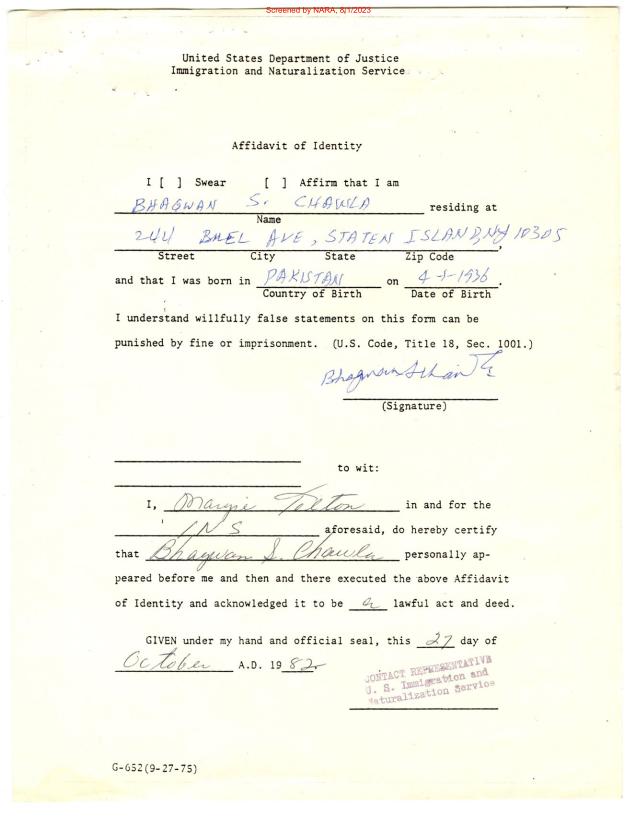 Screened by NARA, 8/1/2023
United States Department of Justice
Immigration and Naturalization Service
Affidavit of Identity
I [ ] Swear [ ] Affirm that I am
BHAGWAN S. CHAWLA residing at
Name
244 AVE, STATEN ISLAND, NY 10305
Street City State Zip Code
and that I was born in PAKISTAN on 4-1-1936.
Country of Birth Date of Birth
I understand willfully false statements on this form can be
punished by fine or imprisonment. (U.S. Code, Title 18, Sec. 1001.)
(Signature)
to wit:
I, Margie Telton in and for the
INS aforesaid, do hereby certify
that Bhagwan S. Chawla personally ap-
peared before me and then and there executed the above Affidavit
of Identity and acknowledged it to be a lawful act and deed.
GIVEN under my hand and official seal, this 27 day of
October A.D. 19 82
CONTACT REPRESENTATIVE
U. S. Immigration and
Naturalization Service
G-652(9-27-75)